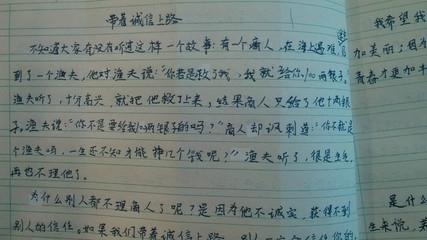 带着诚信上路
不知道大家有没有听过这样一个故事：有个商人，在海上遇难，遇
到了一个渔夫，他对渔夫说：“你若是救了我，我就给你100两银子。
渔夫听了，十分高兴，就把他救了上来，结果商人只给了他十两银
子。渔夫说：“你不是要给我100两银子的吗？”商人却讽刺道：“你不就是
个渔夫吗，一生还不知才能挣几个钱呢？”渔夫听了，很是生气，
再也不理他了。
为什么别人都不理商人了呢？是因为他不诚实，获得不到
别人的信任。如果我们带着诚信上路，
我希望我
加美丽；因为
青春才更加
是什么
生来说，